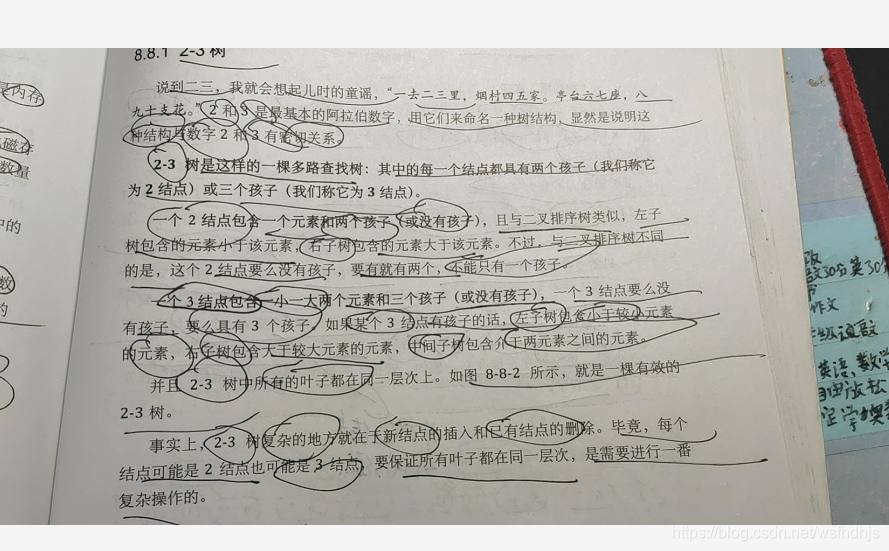 8.8.1 2-3 树
说到二三，我就会想起儿时的童谣，“一去二三里，烟村四五家。亭台六七座，八
九十支花。”2 和 3 是最基本的阿拉伯数字，用它们来命名一种树结构，显然是说明这
种结构与数字 2 和 3 有密切关系。
2-3 树是这样的一棵多路查找树：其中的每一个结点都具有两个孩子（我们称它
为 2 结点）或三个孩子（我们称它为 3 结点）。
一个 2 结点包含一个元素和两个孩子（或没有孩子），且与二叉排序树类似，左子
树包含的元素小于该元素，右子树包含的元素大于该元素。不过，与二叉排序树不同
的是，这个 2 结点要么没有孩子，要有就有两个，不能只有一个孩子。
一个 3 结点包含一小一大两个元素和三个孩子（或没有孩子），一个 3 结点要么没
有孩子，要么具有 3 个孩子。如果某个 3 结点有孩子的话，左子树包含小于较小元素
的元素，右子树包含大于较大元素的元素，中间子树包含介于两元素之间的元素。
并且 2-3 树中所有的叶子都在同一层次上。如图 8-8-2 所示，就是一棵有效的
2-3 树。
事实上，2-3 树复杂的地方就在于新结点的插入和已有结点的删除。毕竟，每个
结点可能是 2 结点也可能是 3 结点，要保证所有叶子都在同一层次，是需要进行一番
复杂操作的。
内存
磁存
数量
中的
数
的
作文
英语，数学
https://blog.csdn.net/wsfhdhjs